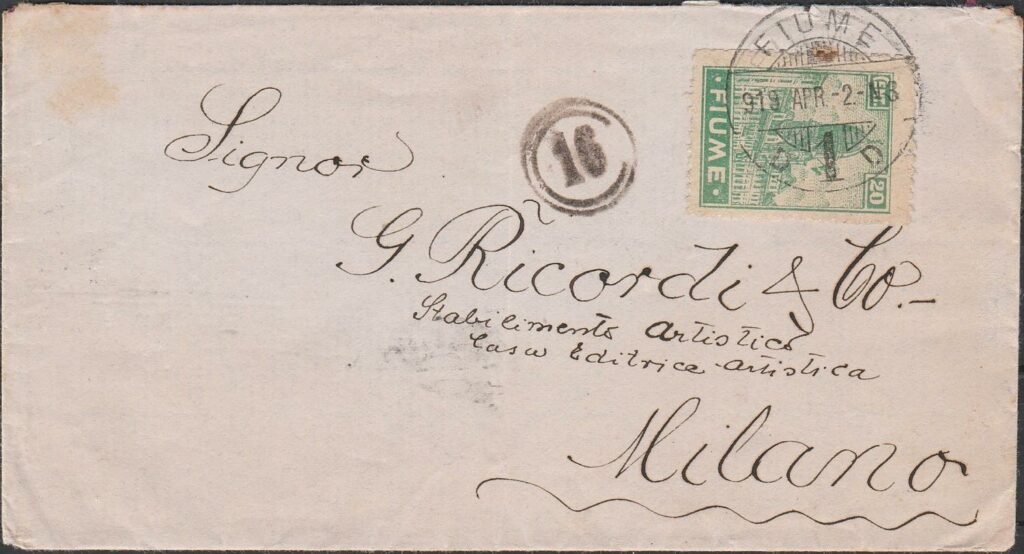 FIUME
919 APR.-2.-N6
1
D
FIUME
20
16
Signor
G. Ricordi & Co.-
Stabilimento Artistico
Casa Editrice Artistica
Milano